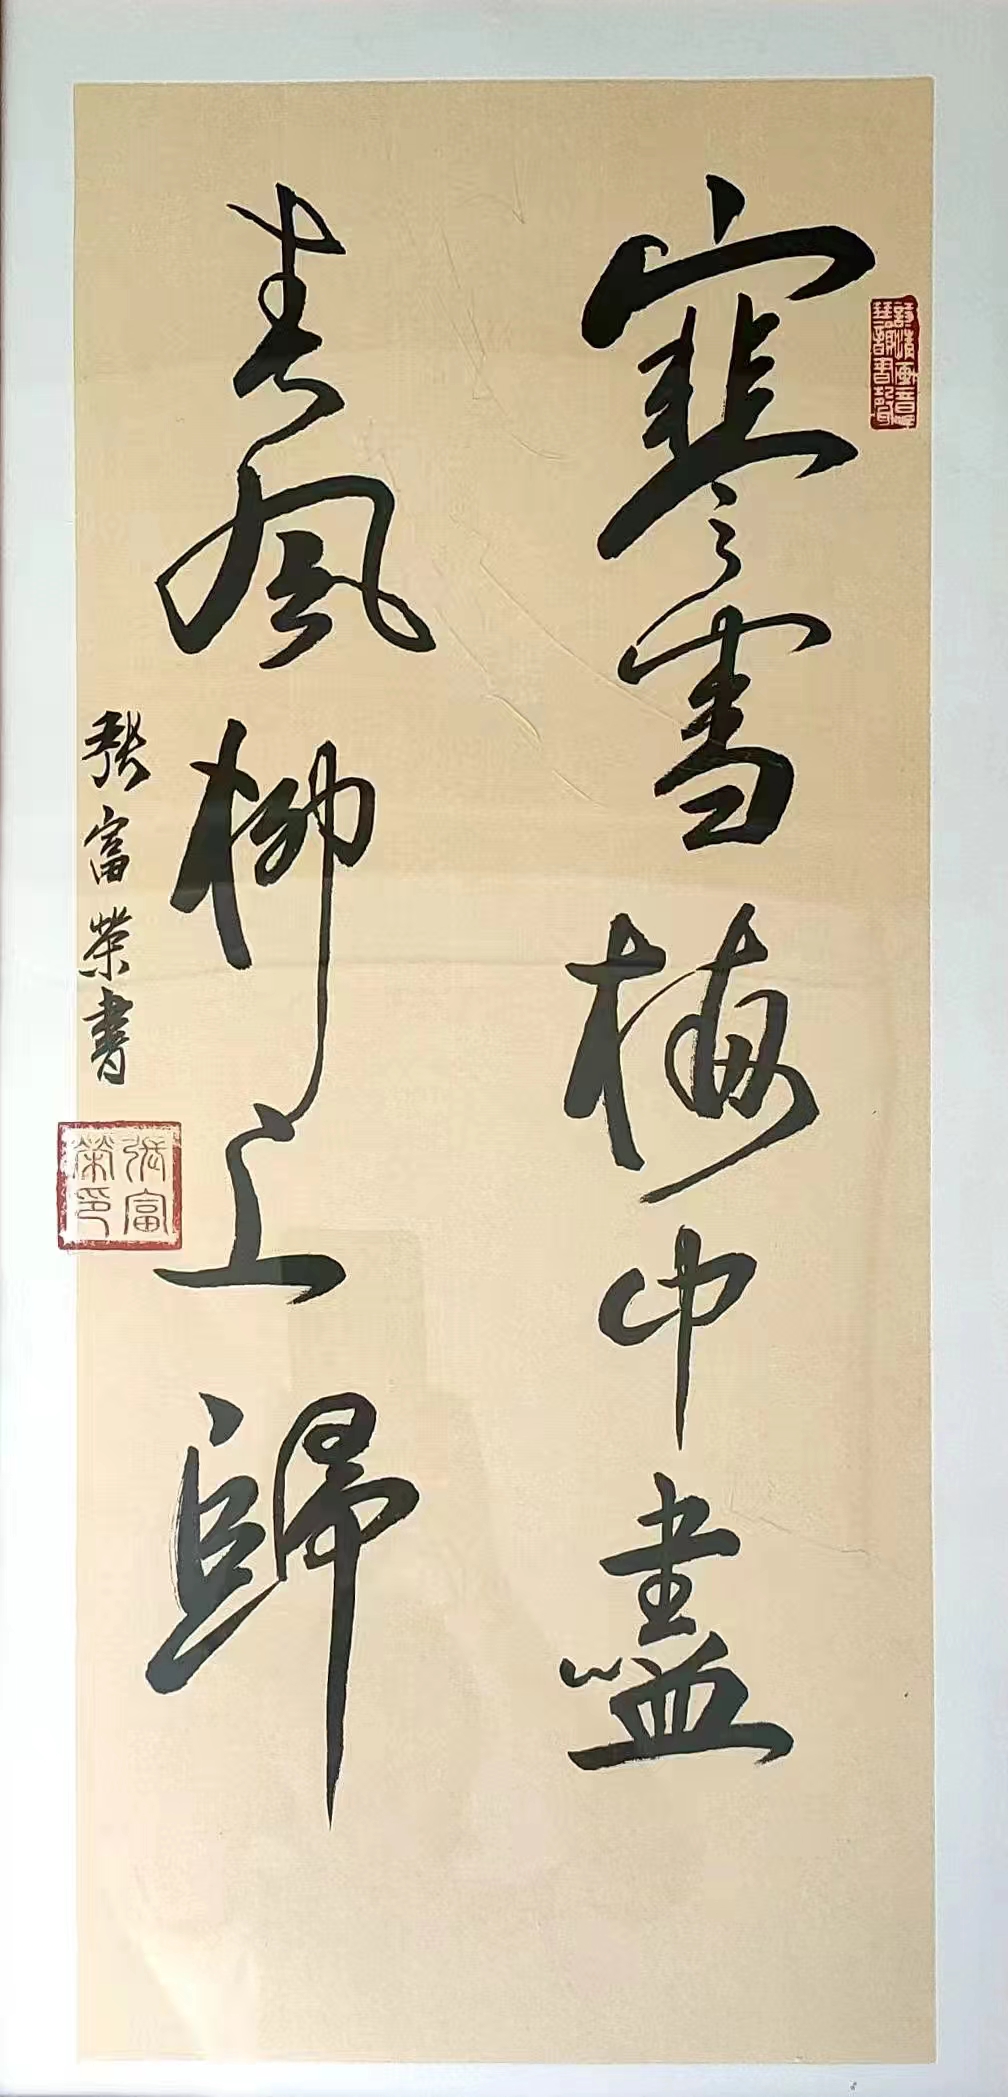 寒雪梅中盡
春風柳上歸
張富榮書
張富榮印